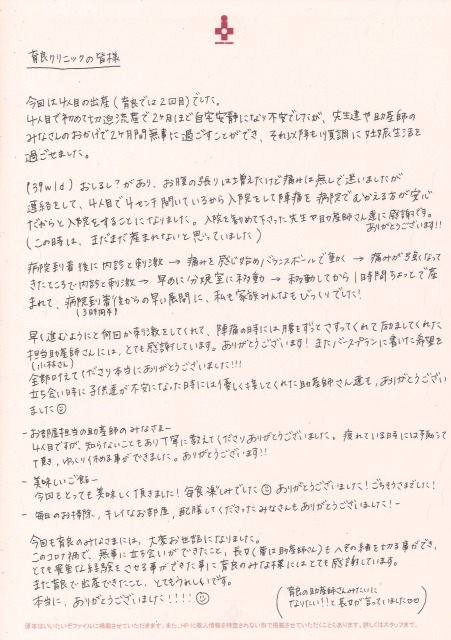 育良クリニックの皆様
今回は4人目の出産(育良では2回目)でした。
4人目で初めて切迫流産で2ヶ月ほど自宅安静になり不安でしたが、先生達や助産師の
みなさんのおかげで2ヶ月間無事に過ごすことができ、それ以降も順調に妊娠生活を
過ごせました。
(39w1d) おしるし?があり、お腹の張りは増えたけど痛みは無しで迷いましたが
連絡をして、4人目で4センチ開いているから入院をして陣痛を病院でむかえる方が安心
だからと入院をすることになりました。入院を勧めて下さった先生や助産師さん達に感謝です。
(この時は、まだまだ産まれないと思っていました) ありがとうございます!!
病院到着後に内診と刺激 → 痛みを感じ始めバランスボールで動く → 痛みが強くなって
きたところで内診と刺激 → 早めに分娩室に移動 → 移動してから1時間ちょっとで産
まれて、病院到着後からの早い展開に、私も家族みんなもびっくりでした!
(3時間半)
早く進むようにと何回か刺激をしてくれて、陣痛の時には腰をずっとさすってくれて励ましてくれた
担当助産師さんには、とても感謝しています。ありがとうございます!またバースプランに書いた希望を
(小林さん)
全部叶えてくださり本当にありがとうございました!!!
立ち会い時に子供達が不安になった時には優しく接してくれた助産師さん達も、ありがとうござい
ました☺
- お部屋担当の助産師のみなさま -
4人目ですが、知らないこともあり丁寧に教えてくださりありがとうございました。疲れている日時には予かって
頂き、ゆっくり休める事ができました。ありがとうございます!!
- 美味しいご飯 -
今回もとっても美味しく頂きました!毎食楽しみでした☺ ありがとうございました!ごちそうさまでした!
- 毎日のお掃除、キレイなお部屋、配膳してくださったみなさんもありがとうございました! -
今回も育良のみなさまには、大変お世話になりました。
このコロナ禍で、無事に立ち会いができたこと、長女(夢は助産師さん)もへその緒を切る事ができ、
とても貴重な経験をさせる事ができた事に育良のみなな様にはとても感謝しています。
また育良で出産できたこと、とてもうれしいです。
本当に、ありがとうございました!!!!☺
(育良の助産師さんみたいに
なりたい!!と長女が言っていました)
原本はいいたいぞファイルに掲載させていただきます。また、HPに個人情報を特定されない形で掲載させていただくこともあります。詳しくはスタッフまで。